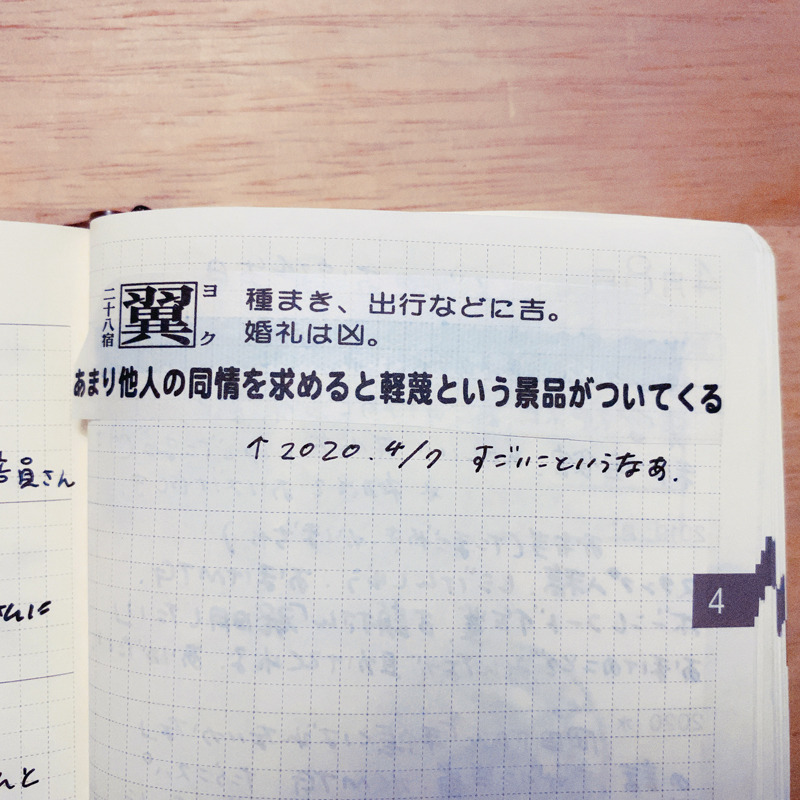 二十八宿
翼
ヨク
種まき、出行などに吉。
婚礼は凶。
あまり他人の同情を求めると軽蔑という景品がついてくる
↑2020.4/7 すごいこというなぁ.
員さん
さんに
んと
4